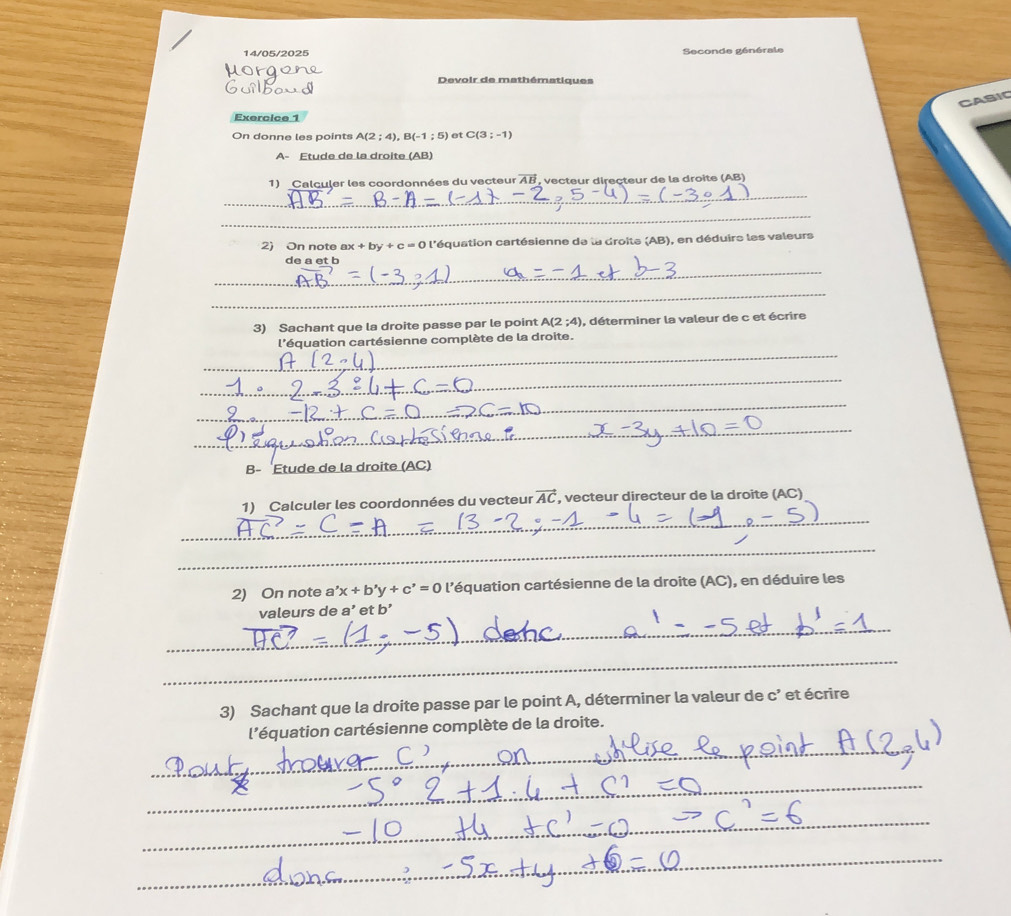 14/05/2025
Seconde générale
Morgane
Guilbaud
Devoir de mathématiques
CASIO
Exercice 1
On donne les points A(2 ; 4), B(-1 ; 5) et C(3 ; -1)
A- Etude de la droite (AB)
1) Calculer les coordonnées du vecteur AB, vecteur directeur de la droite (AB)
AB = B - A = (-1) - 2 ; 5 - 4) = (-3 ; 1)
2) On note ax + by + c = 0 l'équation cartésienne de la droite (AB), en déduire les valeurs
de a et b
AB = (-3 ; 1) a = -1 et b - 3
3) Sachant que la droite passe par le point A(2 ;4), déterminer la valeur de c et écrire
l'équation cartésienne complète de la droite.
A (2 ; 4)
1 . 2 - 3 . 4 + C = 0
2 . -12 + C = 0 => C = 10
l'équation cartésienne : x - 3y + 10 = 0
B- Etude de la droite (AC)
1) Calculer les coordonnées du vecteur AC, vecteur directeur de la droite (AC)
AC = C - A = (3 - 2 ; -1 - 4 = (1 ; - 5)
2) On note a'x + b'y + c' = 0 l'équation cartésienne de la droite (AC), en déduire les
valeurs de a' et b'
AC = (1 ; -5) donc a' = -5 et b' = 1
3) Sachant que la droite passe par le point A, déterminer la valeur de c' et écrire
l'équation cartésienne complète de la droite.
Pour trouver C', on utilise le point A (2 ; 4)
-5 . 2 + 1 . 4 + C' = 0
-10 + 4 + c' = 0 => c' = 6
donc : -5x + y + 6 = 0